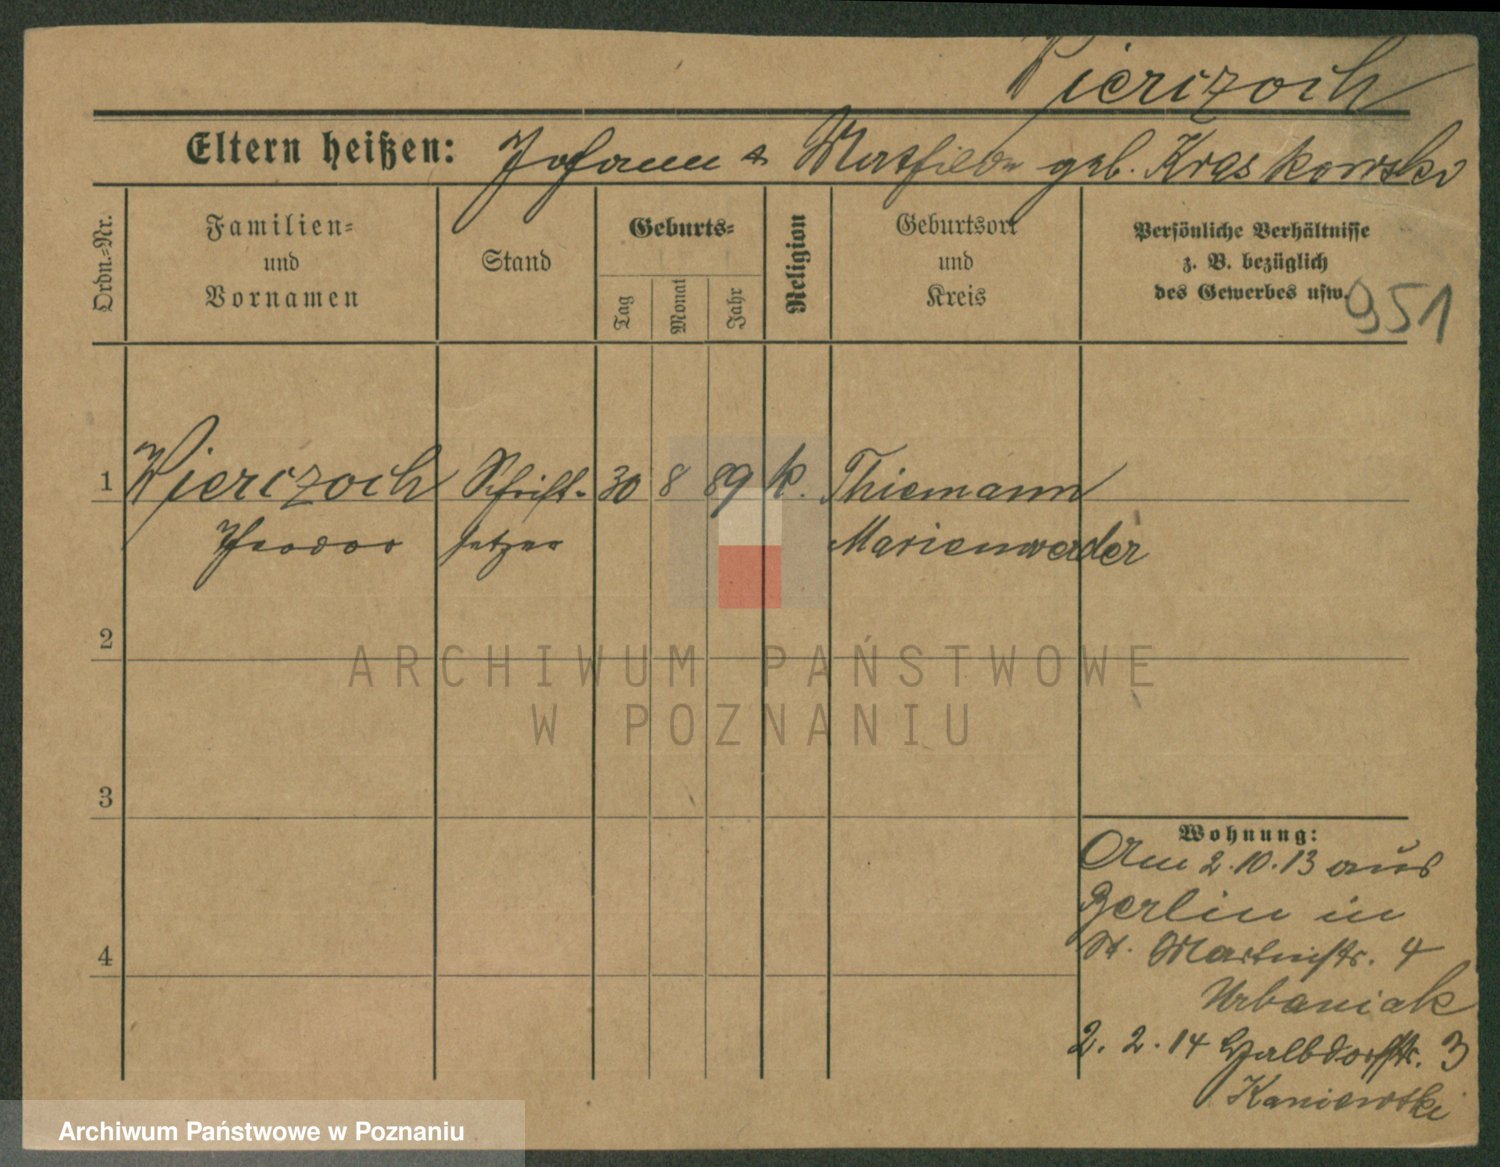 Wierczoch
Eltern heißen: Johann & Mathilde geb. Kraskowski
Ordn.-Nr.
Familien-
und
Vornamen
Stand
Geburts-
Tag
Monat
Jahr
Religion
Geburtsort
und
Kreis
Persönliche Verhältnisse
z. B. bezüglich
des Gewerbes usw.
951
1 Wierczoch Schrift- 30 8 89 k. Thiemann
Theodor setzer Marienwerder
2
3
4
Wohnung:
Am 2.10.13 aus
Berlin in
St. Martinstr. 4
Urbaniak
2. 2. 14 Halbdorfstr. 3
Kaniewski
ARCHIWUM PAŃSTWOWE
W POZNANIU
Archiwum Państwowe w Poznaniu